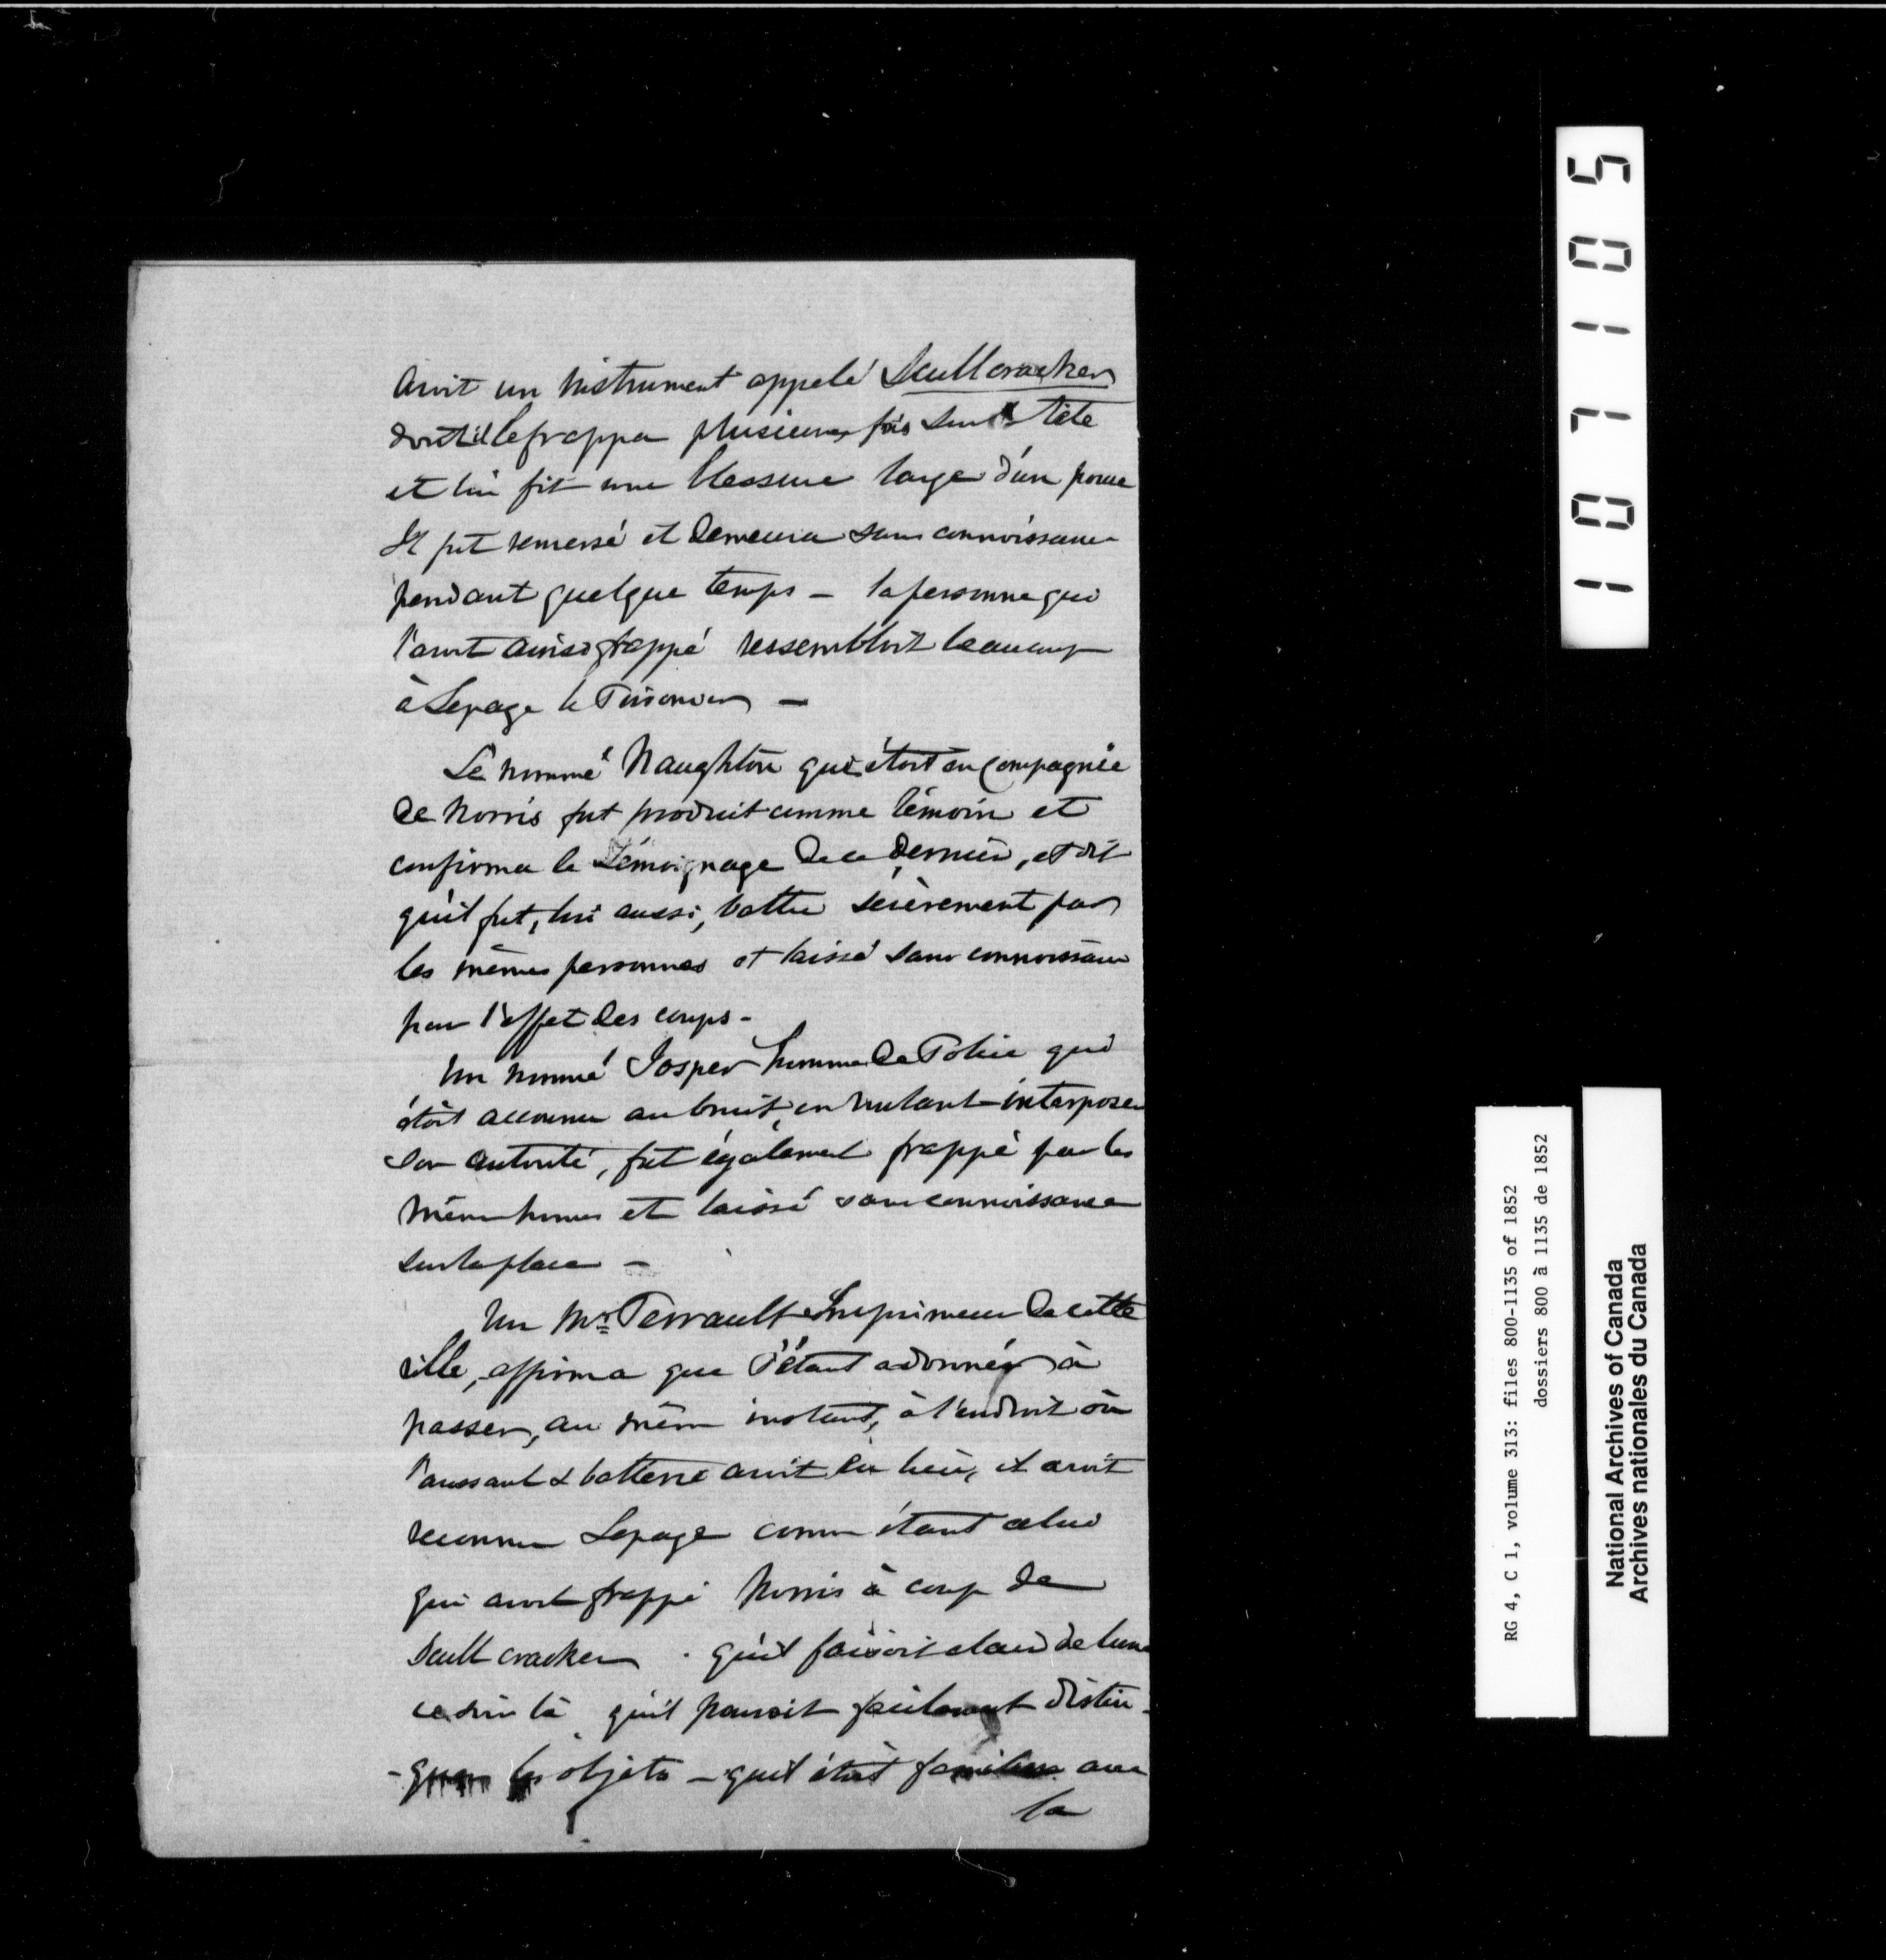 avoit un instrument appelé Scull cracker
dont il le frappa plusieurs fois sur la tête
et lui fit une blessure large d'un pouce
Il fut renversé et demeura sans connoissance
pendant quelque temps - la personne qui
l'avoit ainsi frappé ressembloit beaucoup
à Lepage le Prisonnier -
Le nommé Naughton qui étoit en Compagnie
de Norris fut produit comme témoin et
confirma le Témoignage de ce dernier, et dit
qu'il fut, lui aussi, battu sévèrement par
les mêmes personnes et laissé sans connoissance
par l'effet des coups -
Un nommé Josper homme de Police qui
étoit accouru au bruit, en voulant interposer
son autorité, fut également frappé par les
mêmes hommes et laissé sans connoissance
sur la place -
Un Mr. Perrault Imprimeur de cette
ville, affirma que s'étant adonné à
passer, au même instant, à l'endroit où
l'aussaut & batterie avoit eu lieu, il avoit
reconnu Lepage comme étant celui
qui avoit frappé Norris à coup de
Scull cracker . qu'il faisoit clair de lune
ce soir là qu'il pouvoit facilement distin-
-guer les objets - qu'il étoit familier avec
la
1071105
RG 4, C 1, volume 313: files 800-1135 of 1852
dossiers 800 à 1135 de 1852
National Archives of Canada
Archives nationales du Canada